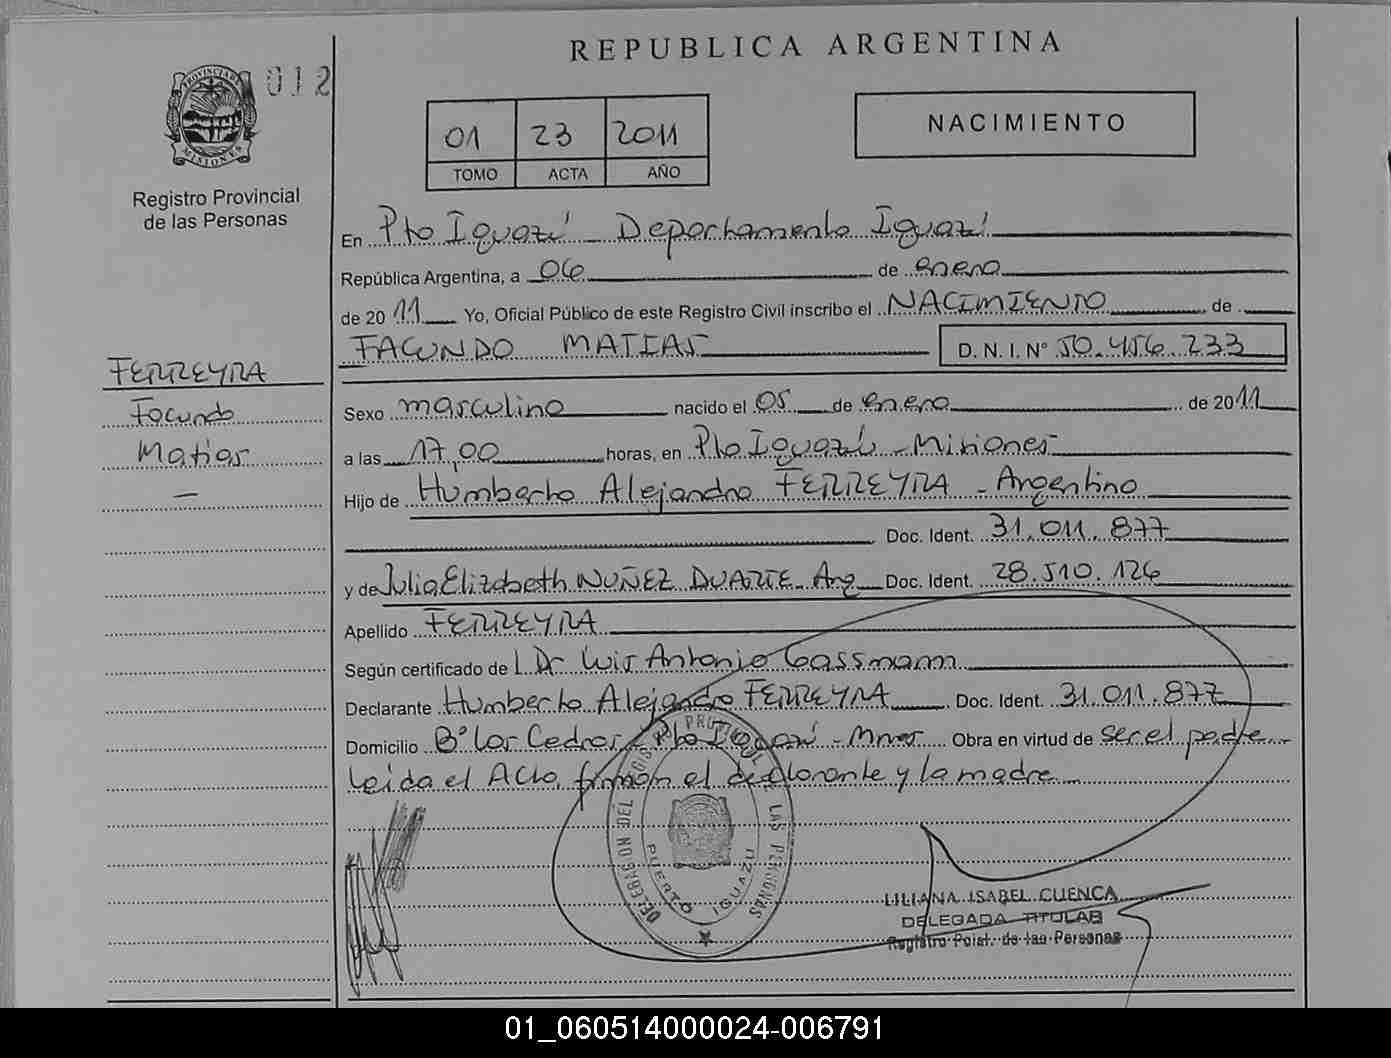 REPUBLICA ARGENTINA
PROVINCIA DE
MISIONES
012
Registro Provincial
de las Personas
01 23 2011
TOMO ACTA AÑO
NACIMIENTO
En Pto Iguazú Departamento Iguazú
República Argentina, a 06 de enero
de 2011 Yo, Oficial Público de este Registro Civil inscribo el NACIMIENTO de
FACUNDO MATIAS D. N. I. Nº 50.456.233
FERREYRA
Facundo
Matías
—
Sexo masculino nacido el 05 de enero de 2011
a las 17,00 horas, en Pto Iguazú - Misiones
Hijo de Humberto Alejandro FERREYRA - Argentino
Doc. Ident. 31.011.877
y de Julia Elizabeth NUÑEZ DUARTE Arg Doc. Ident. 28.510.126
Apellido FERREYRA
Según certificado de l Dr Luis Antonio Gassmann
Declarante Humberto Alejandro FERREYRA Doc. Ident. 31.011.877
Domicilio Bº Los Cedros - Pto Iguazú - Mnes Obra en virtud de ser el padre
Leida el Acta, firman el declarante y la madre
DELEGACION DEL REGISTRO PROVINCIAL DE LAS PERSONAS
PUERTO IGUAZU
LILIANA ISABEL CUENCA
DELEGADA TITULAR
Registro Pcial. de las Personas
01_060514000024-006791